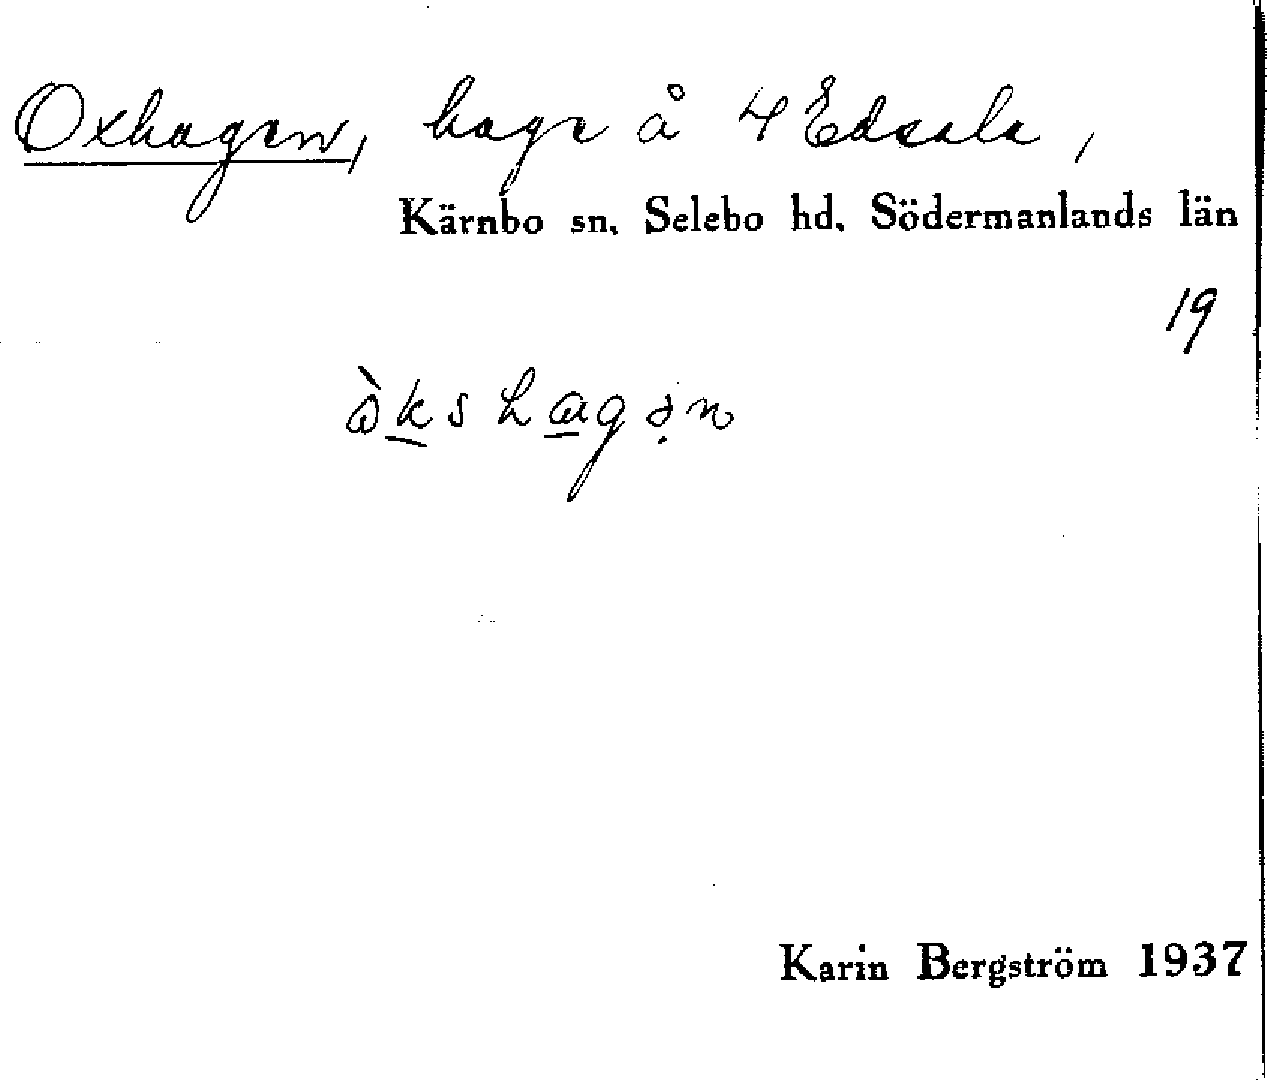 Oxhagen, hage å 4 Edsala,
Kärnbo sn. Selebo hd. Södermanlands län
19
Karin Bergström 1937